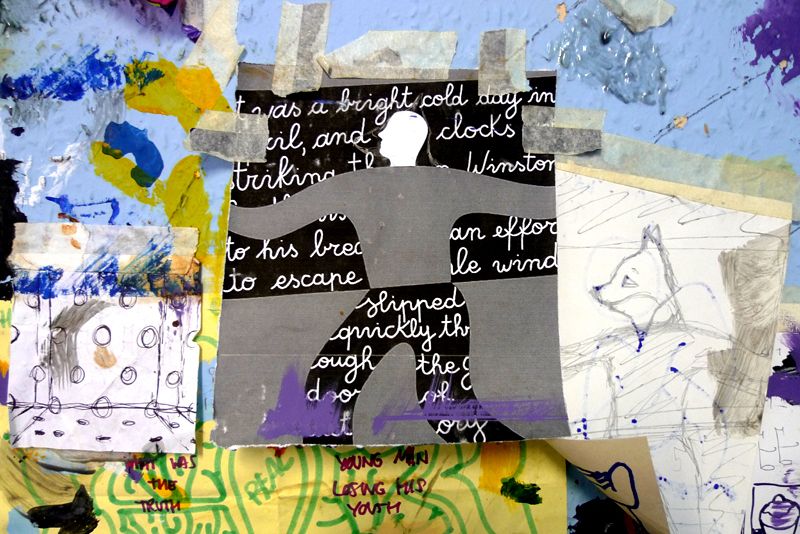 t was a bright cold day in
ril, and clocks
striking th Winston
to his brea an effor
to escape le wind
slipped
quickly thr
ough the g
d oo
ory
WHAT WAS
THE
TRUTH
REAL
YOUNG MAN
LOSING HIS
YOUTH